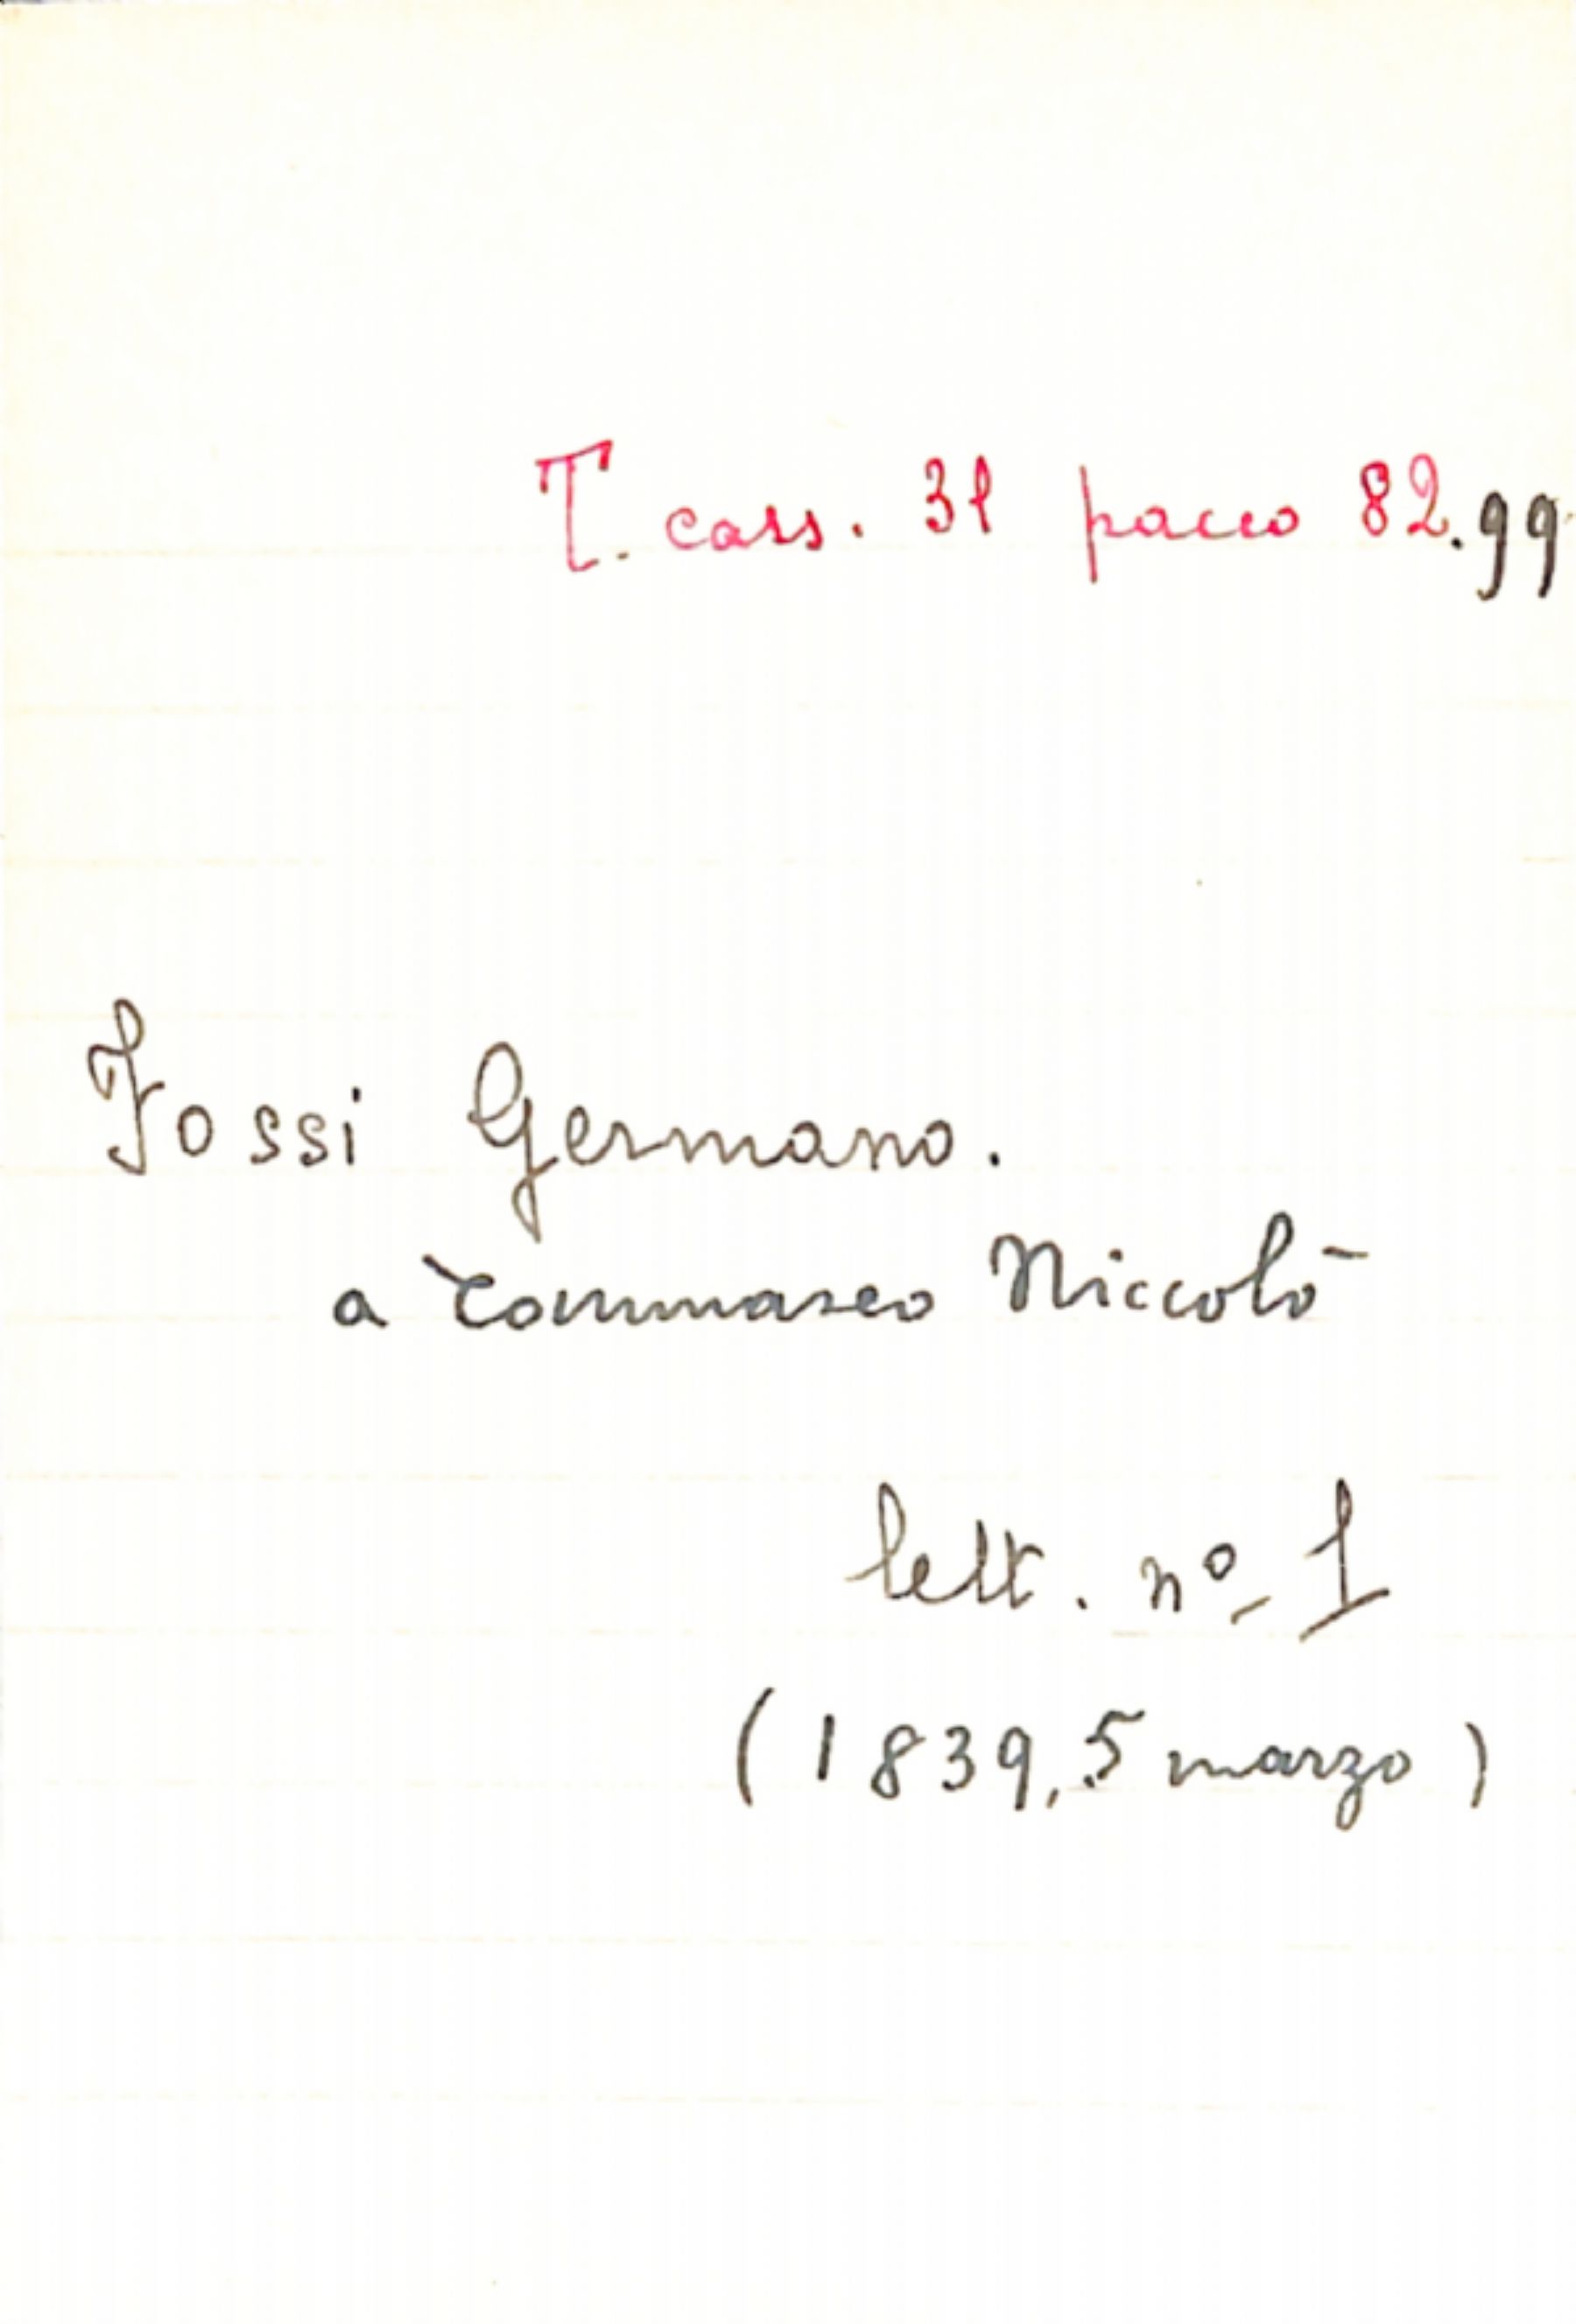 T. cass. 31 pacco 82.99
Fossi Germano.
a Tommaseo Niccolò
lett. nº 1
(1839, 5 marzo)